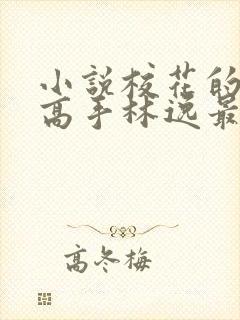 小説校花的
高手林逸最
高冬梅